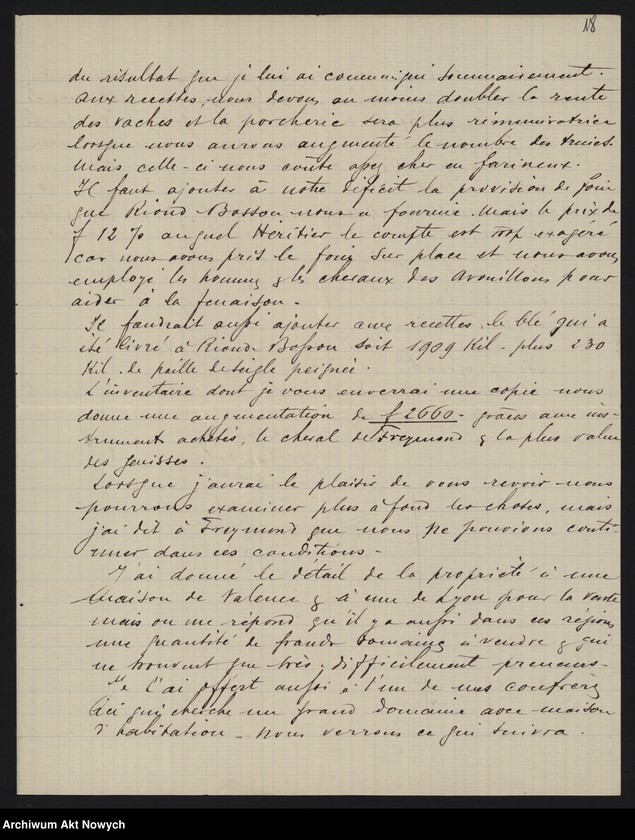 18
du résultat que je lui ai communiqué sommairement.
Aux recettes, nous devons au moins doubler la rente
des vaches et la porcherie sera plus rémunératrice
lorsque nous aurons augmenté le nombre des truies.
Mais celle-ci nous coûte assez cher en farineux.
Il faut ajouter à notre déficit la provision de foin
que Riond-Bosson nous a fournie. Mais le prix de
f 12 % auquel Héritier le compte est trop exagéré
car nous avons pris le foin sur place et nous avons
employé les hommes & les chevaux des Avouillons pour
aider à la fenaison -
Il faudrait aussi ajouter aux recettes le blé qui a
été livré à Riond Bosson soit 1909 Kil - plus 230
Kil. de paille de seigle peignée.
L'inventaire dont je vous enverrai une copie nous
donne une augmentation de f 2660 - grâces aux ins-
truments achetés, le cheval de Freymond & la plus value
des génisses.
Lorsque j'aurai le plaisir de vous revoir nous
pourrons examiner plus à fond les choses, mais
j'ai dit à Freymond que nous ne pouvions conti-
nuer dans ces conditions -
J'ai donné le détail de la propriété à une
Maison de Valence & à une de Lyon pour la vente
mais on me répond qu'il y a aussi dans ces régions
une quantité de grands domaines à vendre & qui
ne trouvent que très difficilement preneurs -
Je l'ai offert aussi à l'un de mes confrères
ici qui cherche un grand domaine avec maison
d'habitation - Nous verrons ce qui suivra.
Archiwum Akt Nowych